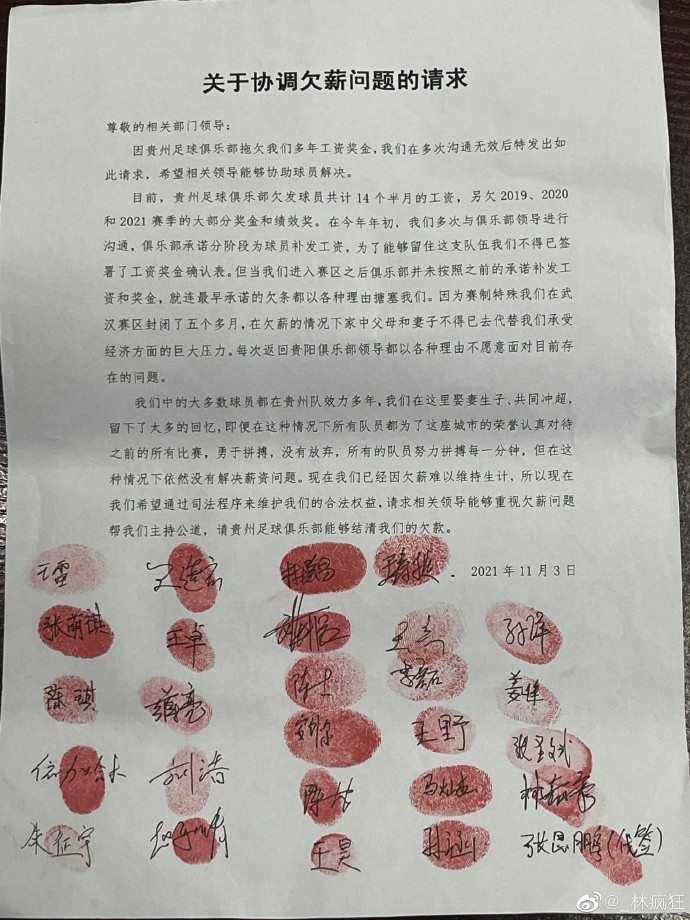 关于协调欠薪问题的请求
尊敬的相关部门领导：
因贵州足球俱乐部拖欠我们多年工资奖金，我们在多次沟通无效后特发出如
此请求，希望相关领导能够协助球员解决。
目前，贵州足球俱乐部欠发球员共计 14 个半月的工资，另欠 2019、2020
和 2021 赛季的大部分奖金和绩效奖。在今年年初，我们多次与俱乐部领导进行
沟通，俱乐部承诺分阶段为球员补发工资，为了能够留住这支队伍我们不得已签
署了工资奖金确认表。但当我们进入赛区之后俱乐部并未按照之前的承诺补发工
资和奖金，就连最早承诺的欠条都以各种理由搪塞我们。因为赛制特殊我们在武
汉赛区封闭了五个多月，在欠薪的情况下家中父母和妻子不得已去代替我们承受
经济方面的巨大压力。每次返回贵阳俱乐部领导都以各种理由不愿意面对目前存
在的问题。
我们中的大多数球员都在贵州队效力多年，我们在这里娶妻生子、共同冲超，
留下了太多的回忆，即便在这种情况下所有队员都为了这座城市的荣誉认真对待
之前的所有比赛，勇于拼搏，没有放弃，所有的队员努力拼搏每一分钟，但在这
种情况下依然没有解决薪资问题。现在我们已经因欠薪难以维持生计，所以现在
我们希望通过司法程序来维护我们的合法权益，请求相关领导能够重视欠薪问题
帮我们主持公道，请贵州足球俱乐部能够结清我们的欠款。
2021 年 11 月 3 日
张萌琪 王卓
陈琪
王野
刘涛
朱征宇 王昊 张昆鹏(代签)
@_林疯狂